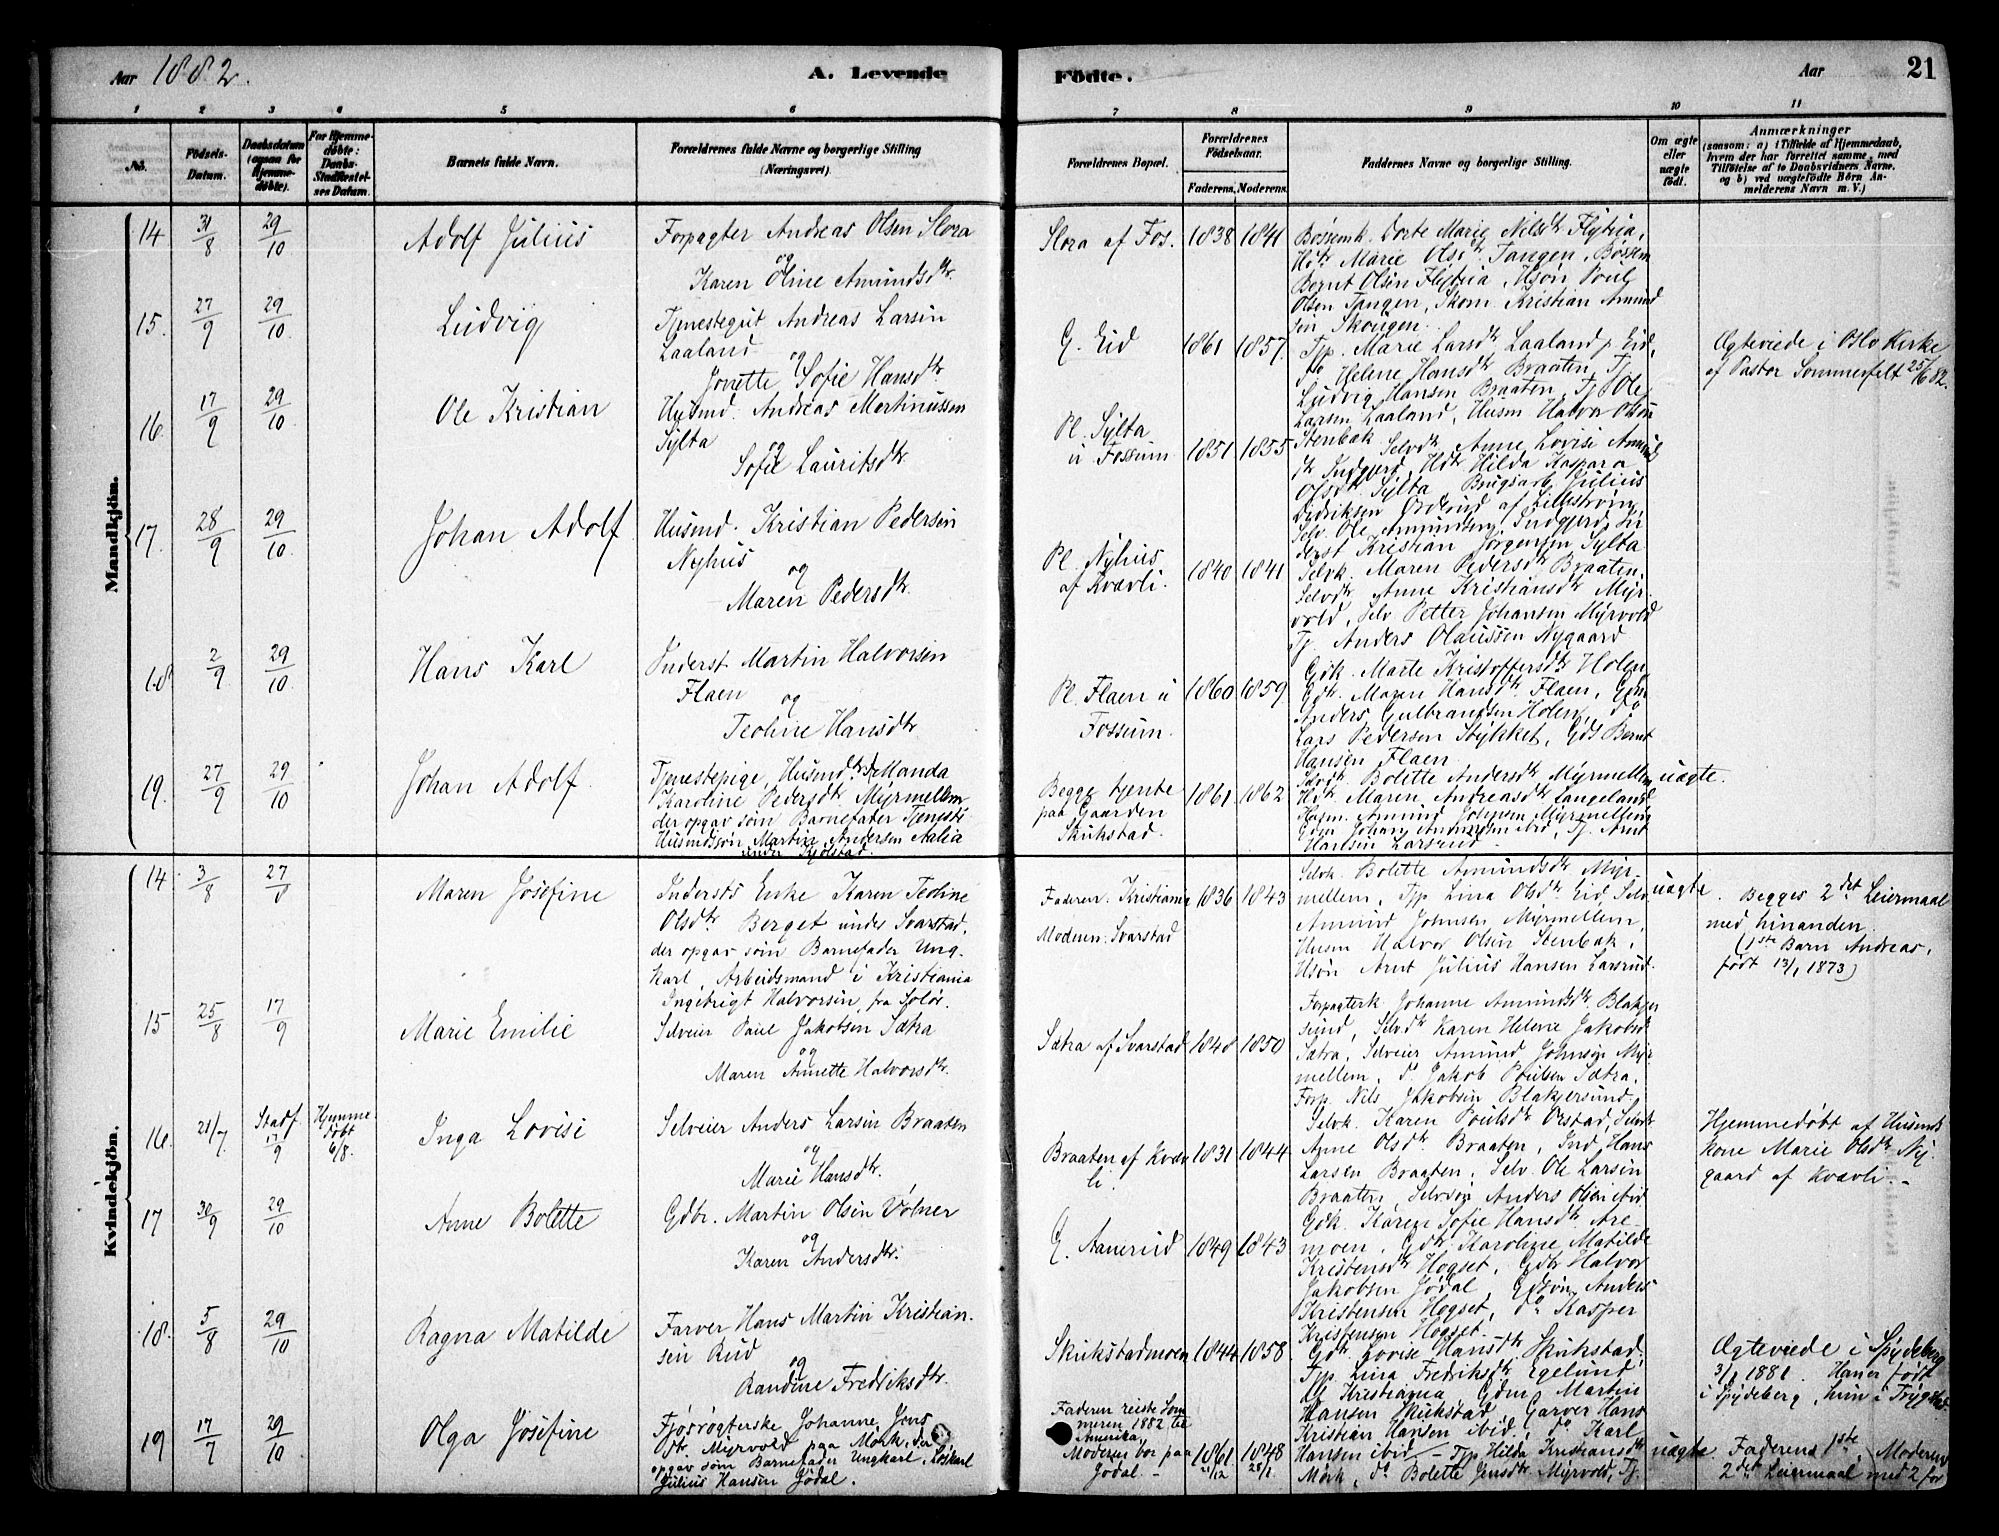 Aar 1882.
A. Levende
Födte.
Aar
21
1 2 3 4 5 6 7 8 9 10 11
No.
Födsels-Datum.
Daabsdatum (ogsaa for Hjemme-döbte).
For Hjemme-döbte: Daabs-Stadfæstel-ses Datum.
Barnets fulde Navn.
Forældrenes fulde Navne og borgerlige Stilling (Næringsvei).
Forældrenes Bopæl.
Forældrenes Födselsaar.
Faderens. Moderens.
Faddernes Navne og borgerlige Stilling.
Om ægte eller uægte födt.
Anmærkninger
(saasom: a) i Tilfælde af Hjemmedaab, hvem der har forrettet samme, med Tilföielse af to Daabsvidners Navne, og b) ved uægtefödte Börn Anmelderens Navn m. V.)
Mandkjön.
14 31/8 29/10 Adolf Julius
Forpagter Andreas Olsen Slora
og
Karen Oline Amundsdtr
Slora af Fos. 1838 1841
Dorte Marie Nilsdtr Flytia,
Marie Olsdtr Tangen,
Bernt Olsen Flytia, Poul
Olsen Tangen, Skom. Kristian Amund
sen Skougen.
15. 27/9 29/10 Ludvig
Tjenestegut Andreas Larsen
Laaland
og
Jonette Sofie Hansdtr.
G. Eid 1861 1857.
Tjp. Marie Larsdtr Laaland p Eid,
do Helene Hansdtr Braaten, Tj.
Ludvig Hansen Braaten, Tj. Ole
Larsen Laaland, Husm Halvor Olsen
Stenbak
Ægteviede i Oslo Kirke
af Pastor Sommerfelt 25/6 82.
16 17/9 29/10 Ole Kristian
Husmd. Andreas Martinussen
Sylta
og
Sofie Lauritsdtr.
Pl. Sylta
u Fossum 1851 1855
Selvdtr Anne Lovise Amund
dtr Indgjerd, Hdtr Hilda Kaspara
Olsdtr Sylta Brugsarb. Julius
Didriksen Ørderud af Lillestrøm,
Selv. Ole Amundsen Indgjerd, In
derst Kristian Jørgensen Sylta
17. 28/9 29/10 Johan Adolf
Husmd. Kristian Pedersen
Nyhus
og
Maren Pedersdtr.
Pl. Nyhus
af Kvævli. 1840 1841
Selvk. Maren Pedersdtr Braaten,
Selvdtr. Anne Kristiansdtr Myr-
vold, Selv Petter Johansen Myrvold
Tj. Anders Olaussen Nygaard
18. 2/9 29/10 Hans Karl
Inderst Martin Halvorsen
Flaen
og
Teoline Hansdtr
Pl. Flaen u
Fossum. 1860 1859
Gdk. Marte Kristoffersdtr Holen,
Gdtr. Maren Hansdtr Flaen, Gdm
Anders Gulbrandsen Holen, do
Lars Pedersen Stykket, Gds Bernt
Hansen Flaen
19. 27/9 29/10 Johan Adolf
Tjenestepige, Husmdtr Manda
Karoline Pedersdtr Myrmellem,
der opgav som Barnefader Tjeneste
Husmdssøn Martin Andersen Aalia
under Kjølstad.
Begge tjente
paa Gaarden
Skukstad. 1861. 1862
Selvk. Bolette Andersdtr Myrmellem
Hdtr. Maren Andreasdtr Langeland
Husm. Amund Johnsen Myrmellem
Gdm Johan Amundsen ibid, Tj. Arnt
Hansen Larsrud
uægte.
Kvindekjön.
14 3/8 27/8 Maren Josefine
Indersts Enke Karen Teoline
Olsdtr Berget under Svarstad,
der opgav som Barnefader Ung-
karl, Arbeidsmand i Kristiania
Ingebrigt Halvorsen fra Solør.
Faderen: Kristiania
Moderen: Svarstad 1836 1843
Selvk. Bolette Amundsdtr Myr-
mellem, Tjp Lina Olsdtr Eid, Selv.
Amund Johnsen Myrmellem,
Husm Halvor Olsen Stenbak,
Hsøn Arnt Julius Hansen Larsrud.
uægte
Begges 2det Leiermaal
med hinanden.
(1ste Barn Andreas,
født 13/1 1873)
15 25/8 17/9 Marie Emilie
Selveier Paul Jakobsen Sætra
og
Maren Annette Halvorsdtr.
Sætra af Svarstad 1848 1850
Forpagterk Johanne Amundsdtr Blakjer
sund, Selvdtr Karen Helene Jakobsd
Sætra, Selveier Amund Johnsen Myr
mellem, do Jakob Poulsen Sætra,
Forp. Nils Jakobsen Blakjersund.
16 21/7 Stadf 17/9 Hjemmedøbt 6/8. Inga Lovise
Selveier Anders Larsen Braaten
og
Marie Hansdtr.
Braaten af Kvæv
li. 1831 1844
Selvk. Karen Poulsdtr Orstad, Selvk
Anne Olsdtr Braaten, Ind Hans
Larsen Braaten, Selv. Ole Larsen
Braaten, Selvsøn Anders Olsen ibid
Hjemmedøbt af Husmds
kone Marie Olsdtr Ny-
gaard af Kvævli. –
17 30/9 29/10 Anne Bolette
Gdbr. Martin Olsen Volner
og
Karen Andersdtr.
G. Aanerud 1849 1843
Gdk. Karen Sofie Hansdtr Are-
moen, Gdtr Karoline Matilde
Kristensdtr Hogset, Gdbr Halvor
Jakobsen Jødal, Gdsøn Anders
Kristensen Hogset, do Kasper
Kristensen Hogset.
18. 5/8 29/10 Ragna Matilde
Farver Hans Martin Kristian-
sen Rud
og
Randine Fredriksdtr.
Skukstadmoen 1844 1858
Gdtr Lovise Hansdtr Skukstad,
Tjp. Lina Fredriksdtr Egelund
af Kristiania, Gdm Martin
Hansen Skukstad, Garver Hans
Kristian Hansen ibid, do Karl
Hansen ibid –
Ægteviede i Spydeberg
1881. Han er født
i Spydeberg, hun i Trygstad
19 17/7 29/10 Olga Josefine
Fjøsrøgterske Johanne Jens
dtr. Myrvold paa Mørk, der
opgav som Barnefader Ungkarl, Løskarl
Julius Hansen Jødal.
Faderen reiste Som
meren 1882 til
Amerika,
Moderen bor paa
Jødal – 1861 1848
Tjp Hilda Kristiansdtr
Mørk, do Bolette Jensdtr Myrvold, Tj.
uægte.
Faderens 1ste
Moderens
2det Leiermaal med 2 for